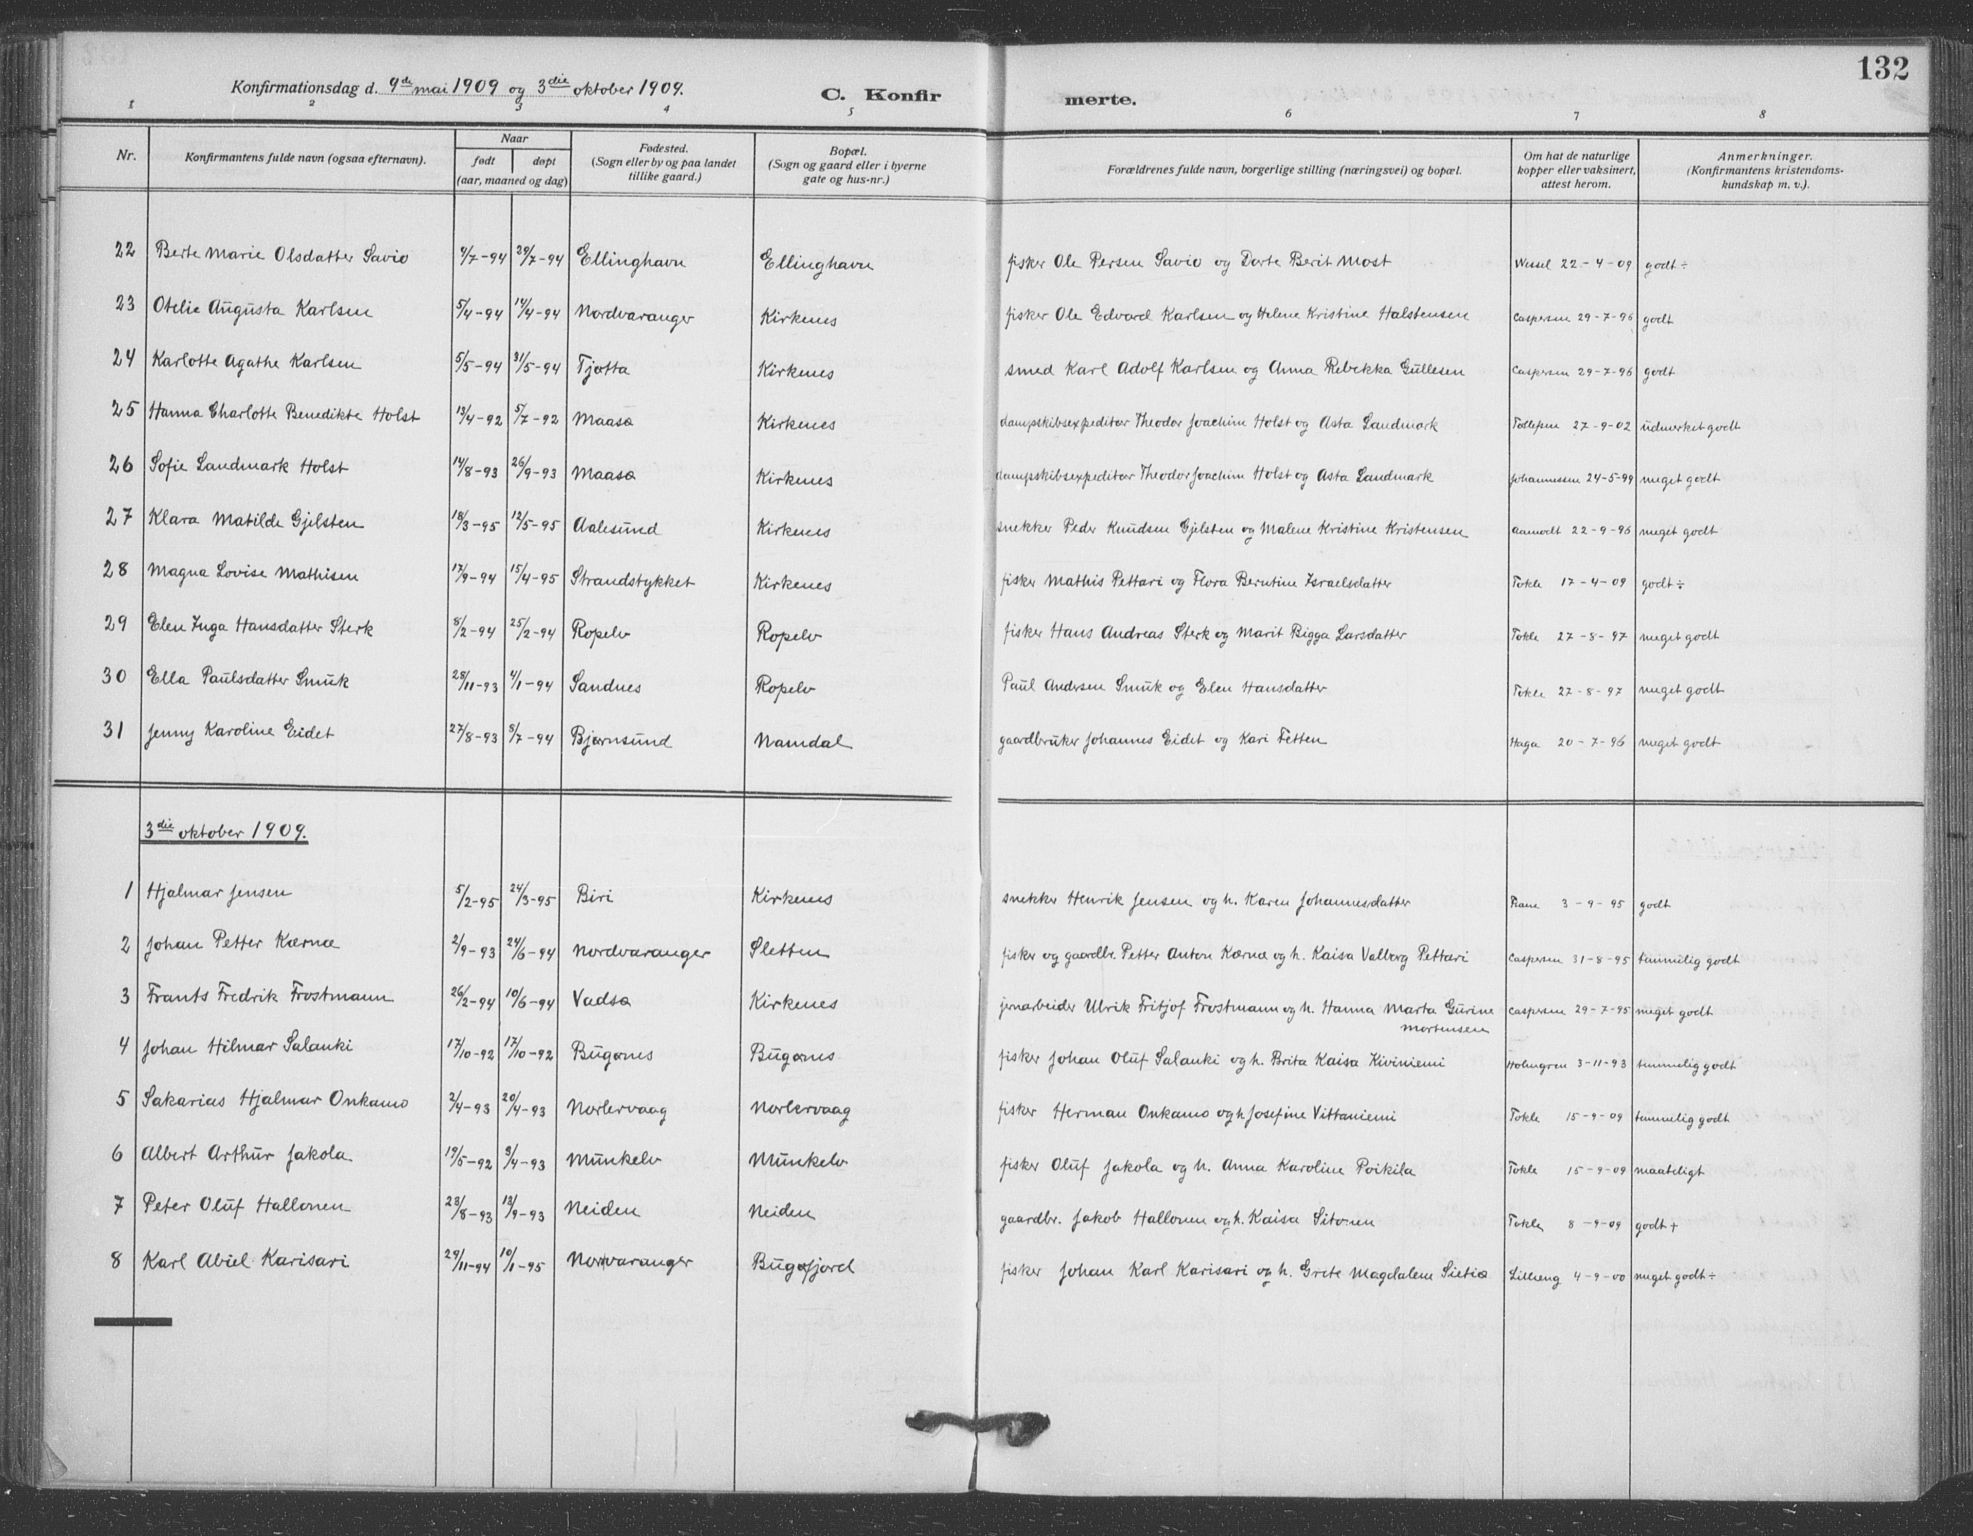 132
Konfirmationsdag d. 9de mai 1909 og 3die oktober 1909.
C. Konfirmerte.
1 2 3 4 5 6 7 8
Nr. Konfirmantens fulde navn (ogsaa efternavn). Naar født døpt (aar, maaned og dag) Fødested. (Sogn eller by og paa landet tillike gaard.) Bopæl. (Sogn og gaard eller i byerne gate og hus-nr.) Forældrenes fulde navn, borgerlige stilling (næringsvei) og bopæl. Om hat de naturlige kopper eller vaksinert, attest herom. Anmerkninger. (Konfirmantens kristendomskundskap m. v.).
22 Berte Marie Olsdatter Savio 9/7-94 29/7-94 Ellinghavn Ellinghavn fisker Ole Persen Savio og Dorte Berit Most Wessel 22-4-09 godt ÷
23 Otelie Augusta Karlsen 5/4-94 14/4-94 Nordvaranger Kirkenes fisker Ole Edvard Karlsen og Helene Kristine Halstensen Caspersen 29-7-96 godt
24 Karlotte Agathe Karlsen 5/5-94 31/5-94 Tjøtta Kirkenes smed Karl Adolf Karlsen og Anna Rebekka Gullesen Caspersen 29-7-96 godt
25 Hanna Charlotte Benedikte Holst 13/4-92 5/7-92 Maasø Kirkenes dampskibsexpeditør Theodor Joachim Holst og Asta Landmark 27-9-02 udmerket godt
26 Sofie Landmark Holst 14/8-93 26/9-93 Maasø Kirkenes dampskibsexpeditør Theodor Joachim Holst og Asta Landmark Johannessen 24-5-99 meget godt
27 Klara Matilde Gjelsten 18/3-95 12/5-95 Aalesund Kirkenes snekker Peder Knudsen Gjelsten og Malene Kristine Kristensen Aanvolt 22-9-96 meget godt
28 Magna Lovise Mathisen 17/9-94 15/4-95 Strandstykket Kirkenes fisker Mathis Pettari og Flora Berntine Israelsdatter Tokle 17-4-09 godt ÷
29 Elen Inga Hansdatter Sterk 8/2-94 25/2-94 Ropelv Ropelv fisker Hans Andreas Sterk og Marit Bigga Larsdatter Tokle 27-8-97 meget godt
30 Ella Paulsdatter Smuk 28/11-93 4/1-94 Sandnes Ropelv Paul Andersen Smuk og Elen Hansdatter Tokle 27-8-97 meget godt
31 Jenny Karoline Eidet 27/8-93 8/7-94 Bjørnsund Namdal gaardbruker Johannes Eidet og Kari Fetten Haga 20-7-96 meget godt
3die oktober 1909.
1 Hjalmar Jensen 5/2-95 24/3-95 Biri Kirkenes snekker Henrik Jensen og h. Karen Johannesdatter 3-9-95 godt
2 Johan Petter Kærnæ 2/9-93 24/6-94 Nordvaranger Sletten fisker og gaardbr. Petter Anton Kærnæ og h. Kaisa Valborg Pettæri Caspersen 31-8-95 temmelig godt
3 Frants Fredrik Frostmann 26/2-94 10/6-94 Vadsø Kirkenes jernarbeider Ulrik Fritjof Frostmann og h. Hanna Marta Gurine Caspersen 29-7-95 meget godt
Mortensen
4 Johan Hilmar Salanki 17/10-92 17/10-92 Bugønes Bugønes fisker Johan Oluf Salanki og h. Brita Kaisa Kiviniemi Holmgren 3-11-93 temmelig godt
5 Sakarias Hjalmar Onkamo 2/4-93 20/4-93 Norlervaag Norlervaag fisker Herman Onkamo og h Josefine Vittaniemi Tokle 15-9-09 temmelig godt
6 Albert Arthur Jakola 19/5-92 3/4-93 Munkelv Munkelv fisker Oluf Jakola og h. Anna Karoline Poikila Tokle 15-9-09 maateligt
7 Peter Oluf Hallonen 23/8-93 13/9-93 Neiden Neiden gaardbr. Jakob Hallonen og h. Kaisa Sitonen Tokle 8-9-09 godt +
8 Karl Abiel Karisari 29/11-94 10/1-95 Norvaranger Bugøfjord fisker Johan Karl Karisari og h. Grete Magdalene Sietiø Lilleeng 4-9-00 meget godt ÷